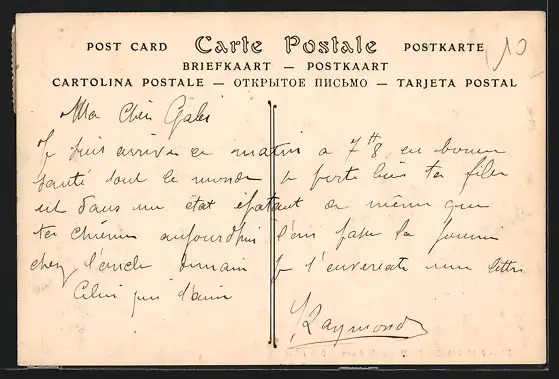 POST CARD Carte Postale POSTKARTE
BRIEFKAART — POSTKAART
CARTOLINA POSTALE — ОТКРЫТОЕ ПИСЬМО — TARJETA POSTAL
10
Ma Chère Gabi
Je suis arrivé ce matin a 7 H 8 en bonne
santé tout le monde se porte bien ta fille
est dans un état épatant de même que
ta chienne aujourd'hui l'on passe la journée
chez l'oncle demain je t'enverrai une lettre
Celui qui t'aime
Raymond